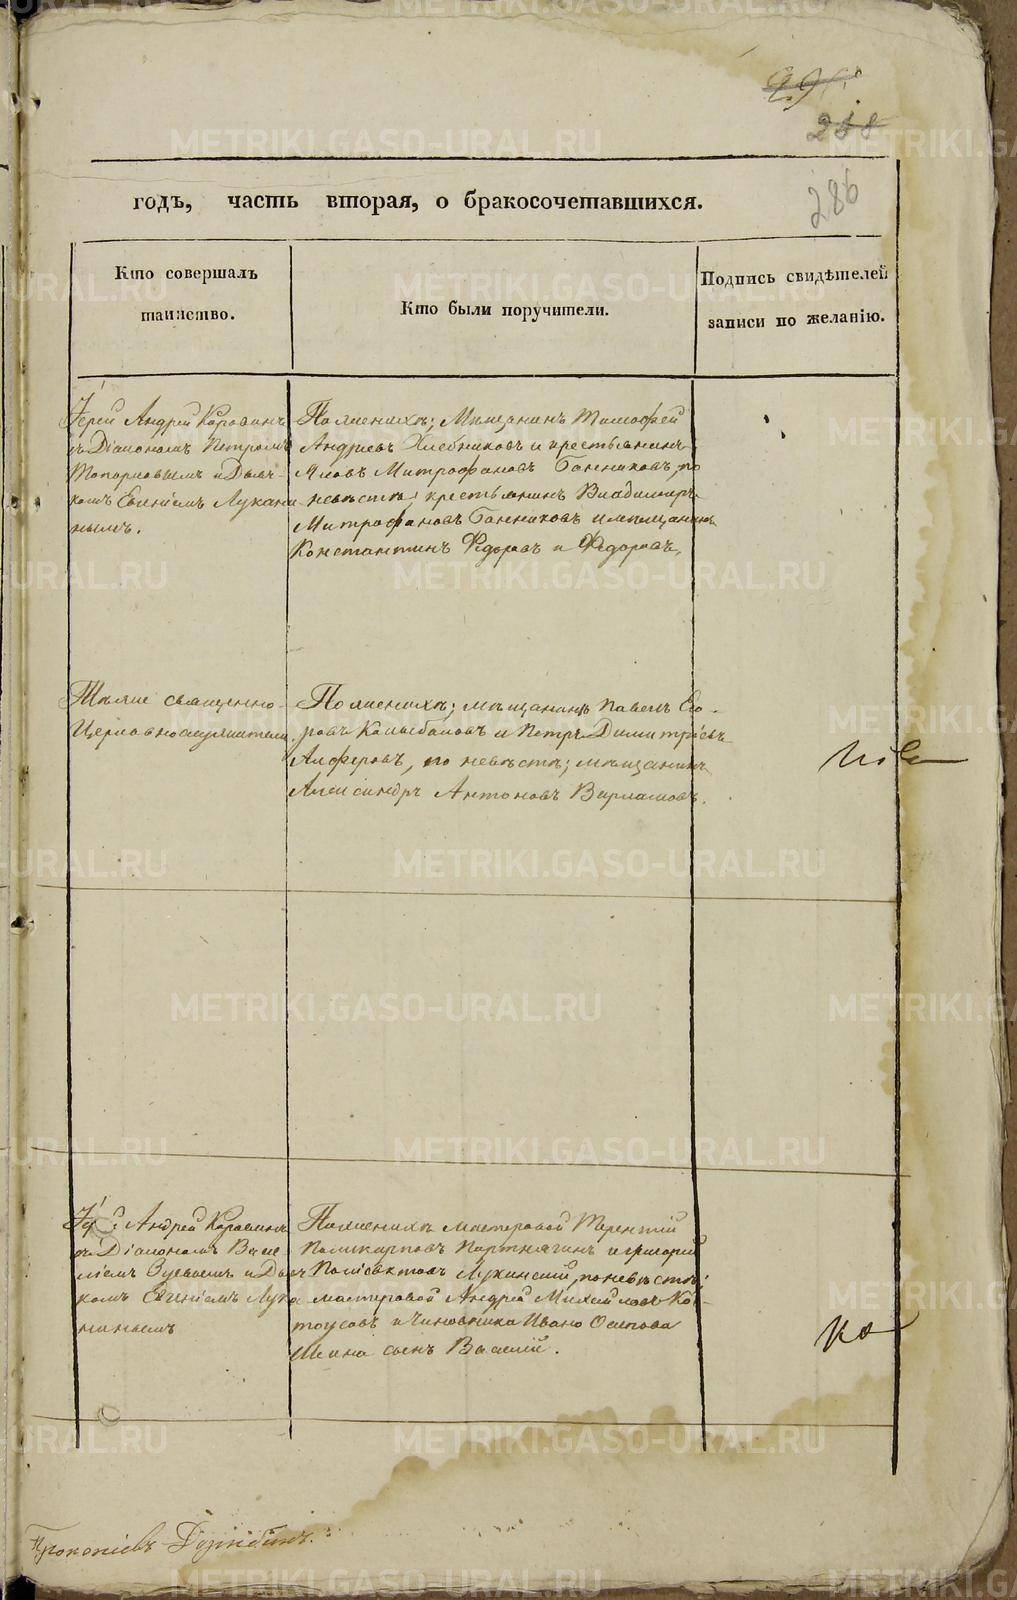 291
288
286
годъ, часть вторая, о бракосочетавшихся.
Кто совершалъ
таинство.
Кто были поручители.
Подпись свидѣтелей
записи по желанію.
Іерей Андрей Коровинъ
съ Діакономъ Петромъ
Топорковымъ и Дьяч-
комъ Евгеніемъ Лукани
нымъ.
По женихѣ; мѣщанинъ Тимофей
Андреевъ Хлебниковъ и крестьянинъ
Яковъ Митрофановъ Банниковъ, по
невѣстѣ; крестьянинъ Владимиръ
Митрофановъ Банниковъ и мѣщанинъ
Константинъ Ѳедоровъ и Ѳедоровъ.
Тѣже священно-
Церковнослужители.
По женихѣ; мѣщанинъ Павелъ Его-
ровъ и Петръ Димитріевъ
Алферовъ, по невѣстѣ; мѣщанинъ
Александръ Антоновъ Варламовъ.
Іер: Андрей Коровинъ
съ Діакономъ Васи-
ліемъ Зуевымъ и Дьяч
комъ Евгеніемъ Лука
нинымъ
По женихѣ мастеровой Терентій
Поликарповъ Портнягинъ и григорей
Полиевктовъ Лукинскій, по невѣстѣ:
мастеровой Андрей Михайловъ Кол-
тоусовъ и Чиновника Ивана Осипова
Шеина сынъ Василій.
Прокопіевъ
METRIKI.GASO-URAL.RU